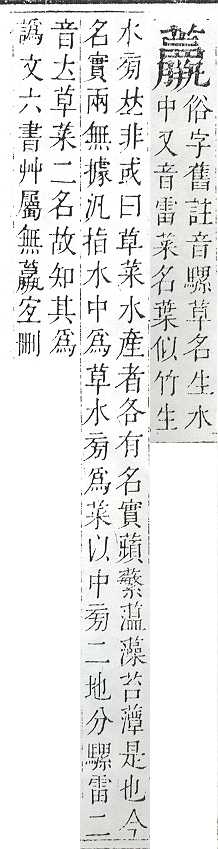 俗字舊註音騾草名生水
中又音雷菜名葉似竹生
水㫄𠀤非或曰草菜水產者各有名實蘋蘩薀藻苔藫是也今
名實兩無據汎指水中爲草水㫄爲菜以中㫄二地分騾雷二
音𠀤草菜二名故知其爲
譌文六書艸屬無宜刪